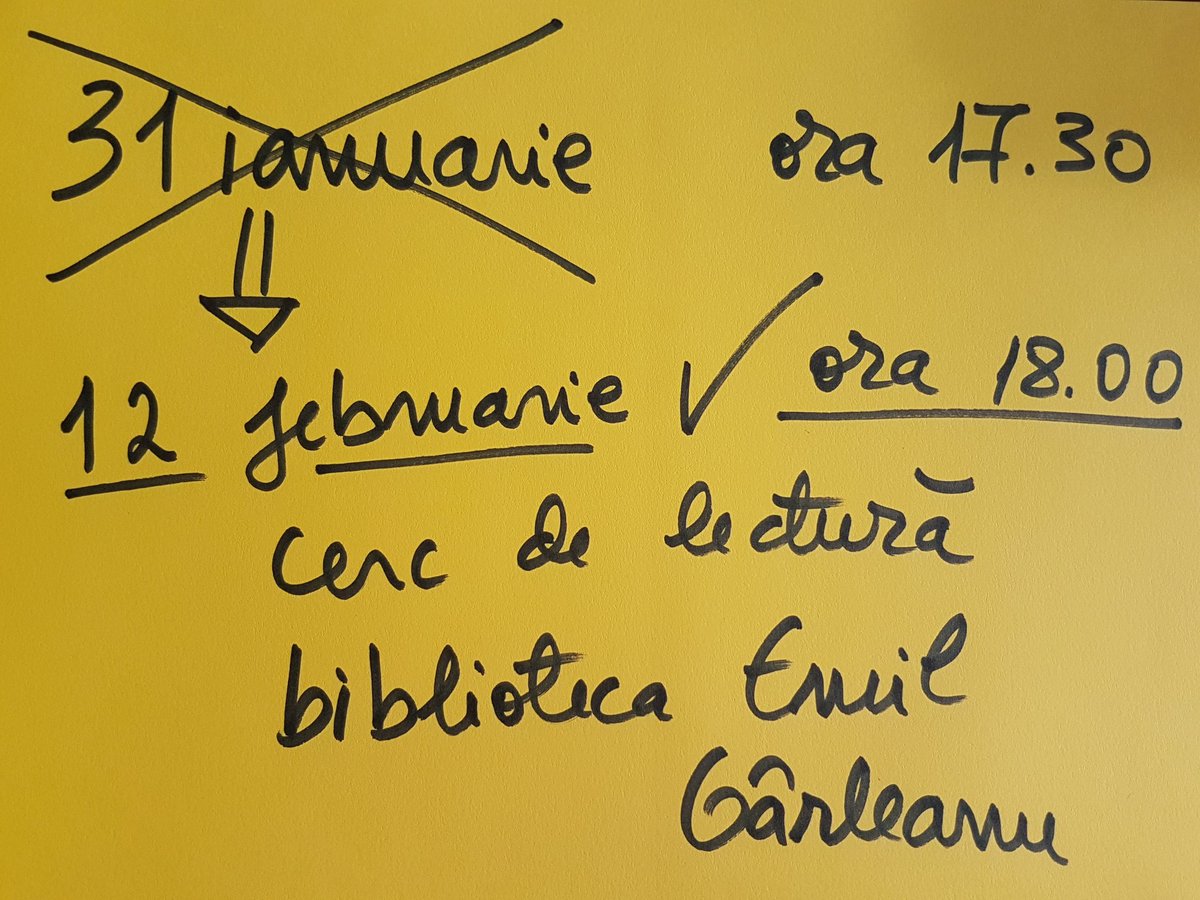 31 ianuarie ora 17.30
12 februarie ora 18.00
cerc de lectură
biblioteca Emil
Gârleanu